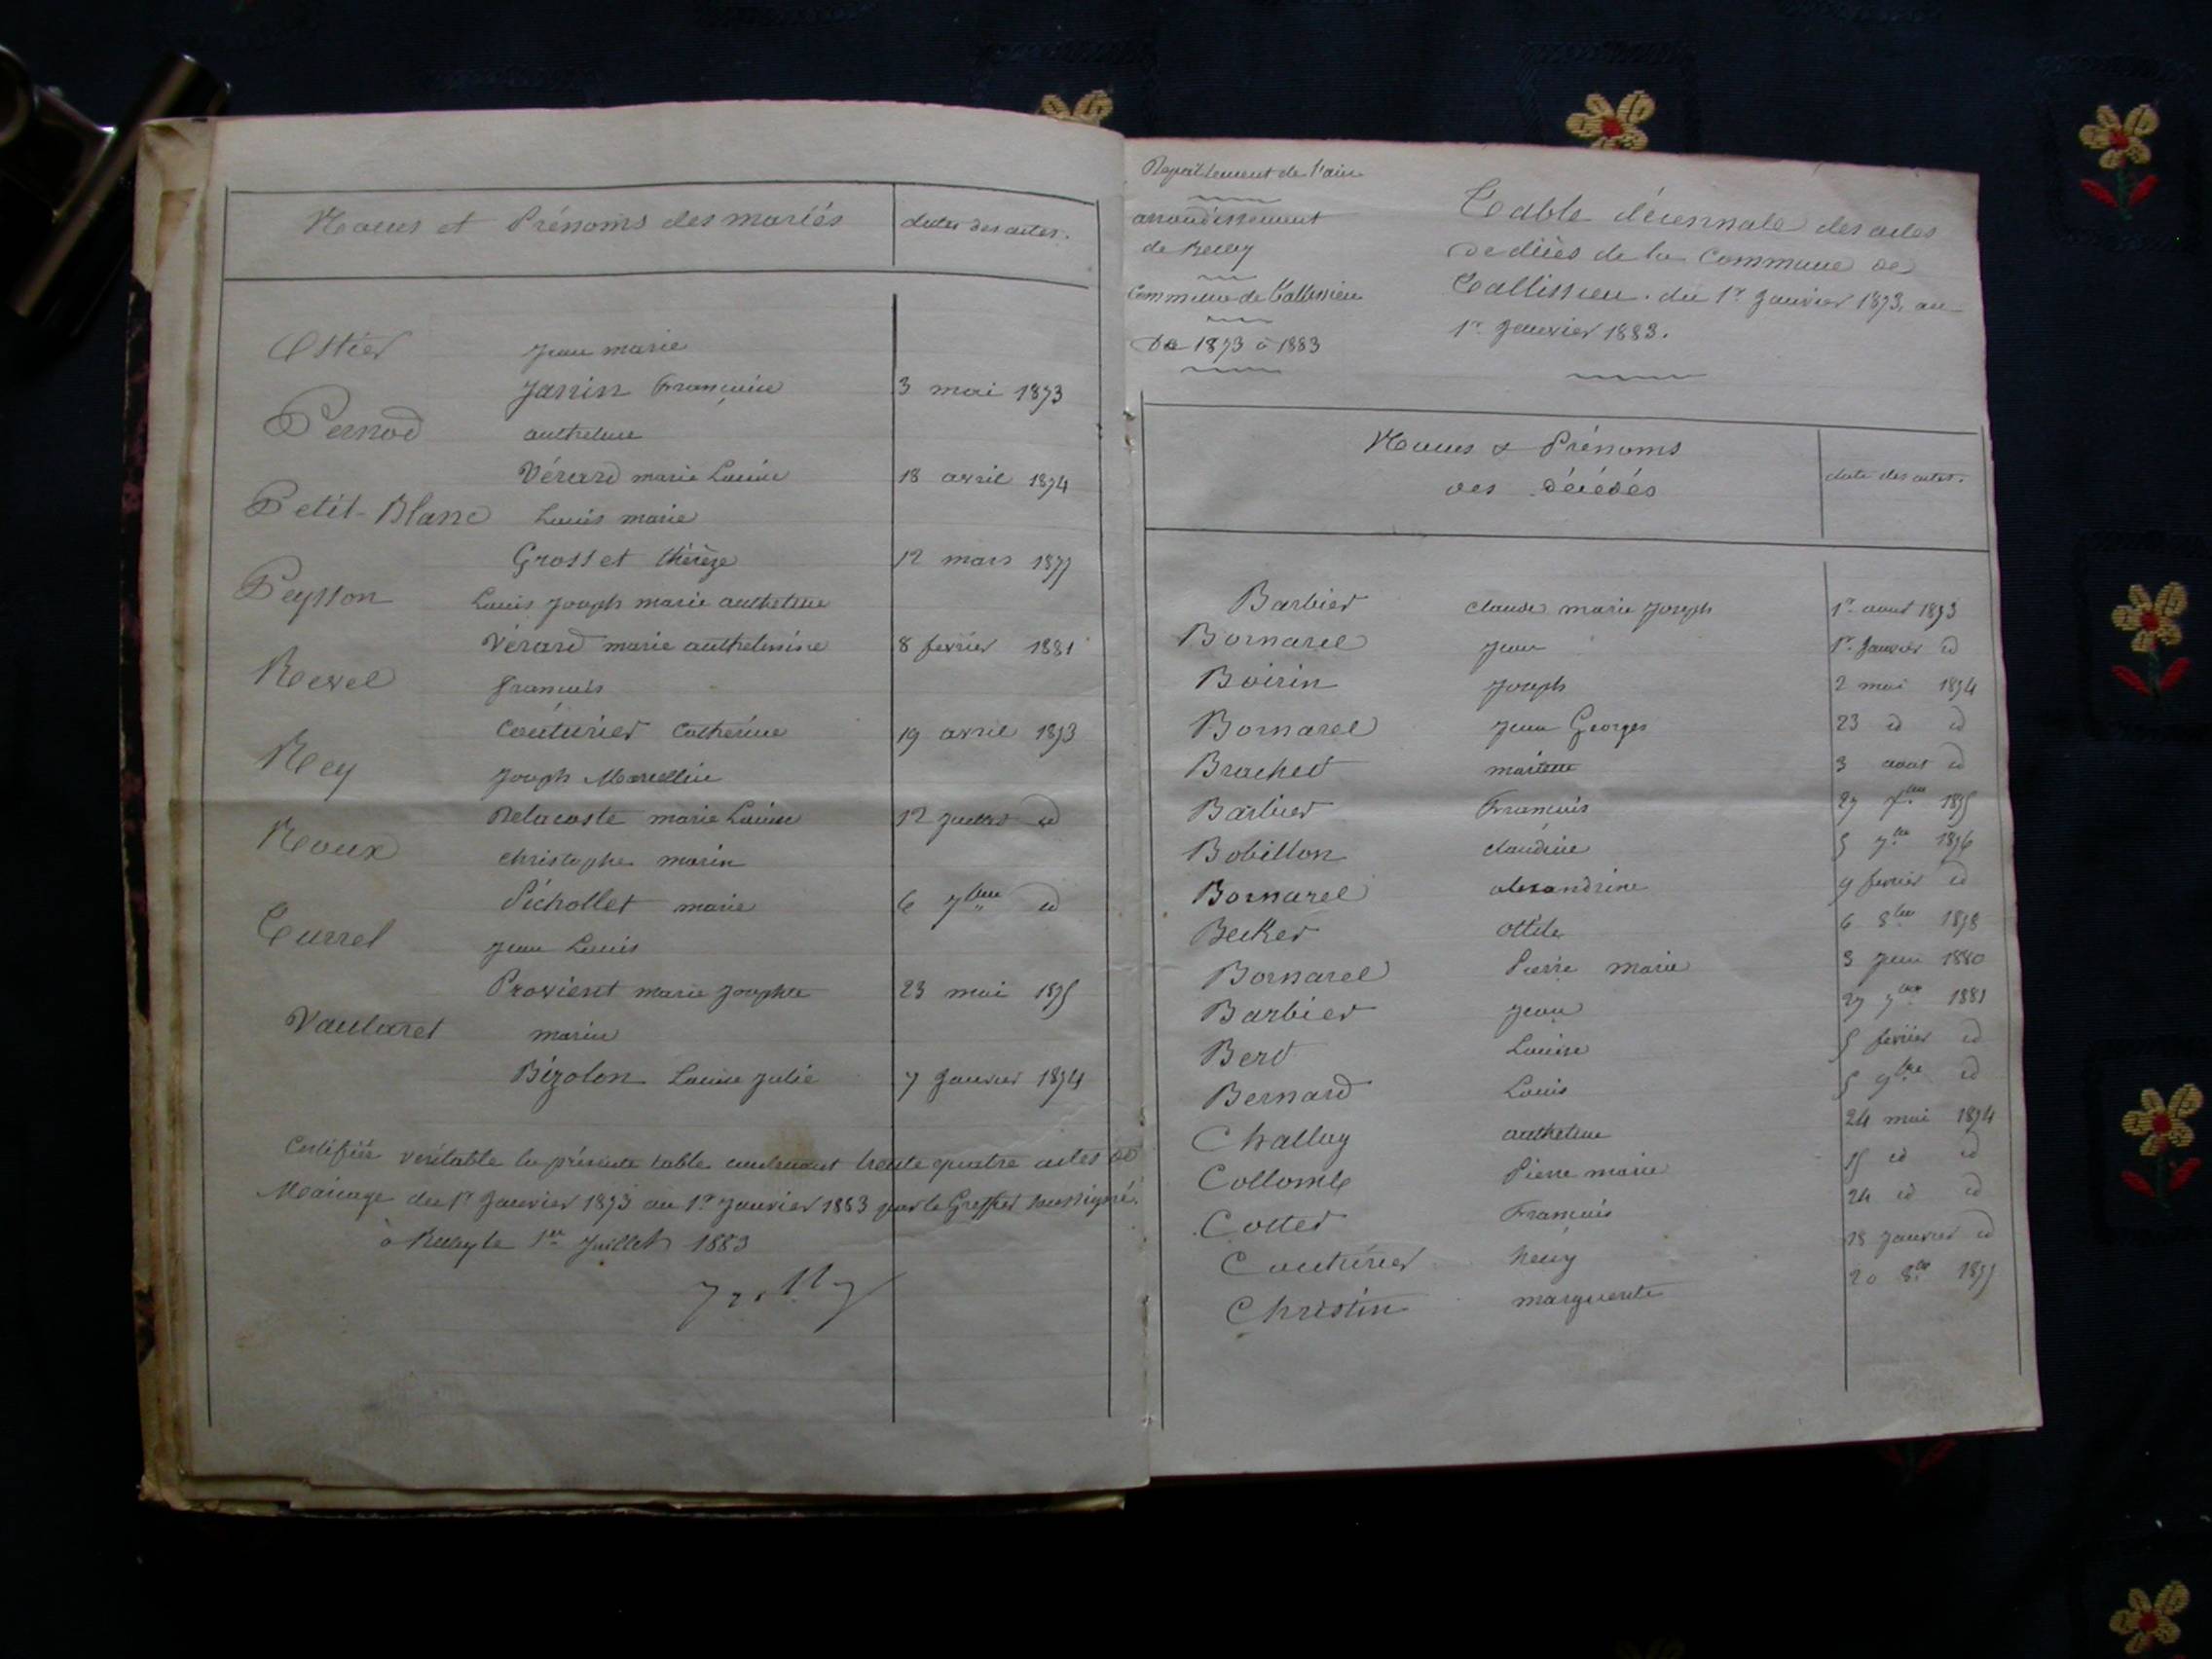 Noms et Prénoms des mariés dates des actes.
Ostier Jean marie
Janin Françoise 3 mai 1873
Pernod anthelme
Vérard marie Louise 18 avril 1874
Petit-Blanc Louis marie
Grosset thérèze 12 mars 1877
Peysson Louis Joseph marie anthelme
Vérard marie anthelmine 8 fevrier 1881
Revel francois
Couturier Catherine 19 avril 1873
Rey Joseph Marcellin
Delacoste marie Louise 12 Juillet id
Roux christophe marin
Pichollet marie 6 7bre id
Currel Jean Louis
Provient marie Josephte 23 mai 1875
Vaularet marin
Bizolon Louise Julie 7 Janvier 1874
Certifiée véritable la présente table contenant trente quatre actes de
Mariage du 1er Janvier 1873 au 1er Janvier 1883 par le Greffier soussigné.
à Belley le 1er Juillet 1883
Département de l'ain
arrondissement
de Belley
Commune de Tallissieu
De 1873 à 1883
Table décennale des actes
de décès de la Commune de
Tallissieu. du 1er Janvier 1873, au
1er Janvier 1883.
Noms & Prénoms
des décédés
date des actes.
Barbier claude marie Joseph 1er aout 1873
Bornarel Jean 1er Janvier id
Boirin Joseph 2 mai 1874
Bornarel Jean Georges 23 id id
Brachet 3 aout id
Barbier Francois 27 1875
Bobillon claudine 5 7bre 1876
Bornarel alexandrine 9 fevrier id
Becker ottile 6 8bre 1878
Bornarel Pierre marie 3 Juin 1880
Barbier Jean 27 7bre 1881
Bert Louise 5 février id
Bernard Louis 5 9bre id
Challuy anthelme 24 mai 1874
Collomb Pierre marie 15 id id
Cottet Francois 24 id id
Couturier henry 18 Janvier id
Christin marguerite 20 8bre 1875